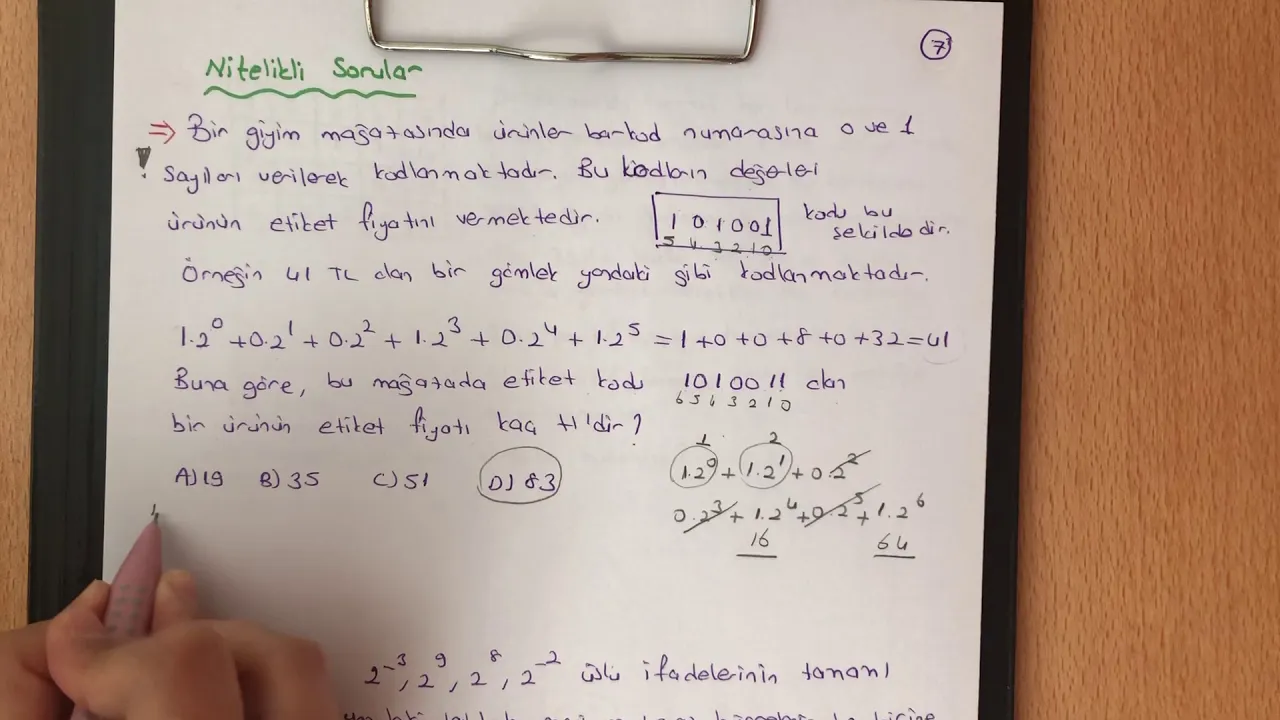 7
Nitelikli Sorular
⇒ Bir giyim mağazasında ürünler barkod numarasına 0 ve 1
! sayıları verilerek kodlanmaktadır. Bu kodların değerleri
ürünün etiket fiyatını vermektedir.
101001
5 4 3 2 1 0
kodu bu
şekildedir.
Örneğin 41 TL olan bir gömlek yandaki gibi kodlanmaktadır.
1.2⁰ + 0.2¹ + 0.2² + 1.2³ + 0.2⁴ + 1.2⁵ = 1+0+0+8+0+32=41
Buna göre, bu mağazada etiket kodu 1010011 olan
6 5 4 3 2 1 0
bir ürünün etiket fiyatı kaç tl'dir?
A) 19 B) 35 C) 51 D) 83
1 2
1.2⁰ + 1.2¹ + 0.2²
0.2³ + 1.2⁴ + 0.2⁵ + 1.2⁶
16 64
2⁻³, 2⁹, 2⁸, 2⁻² üslü ifadelerinin tamamı